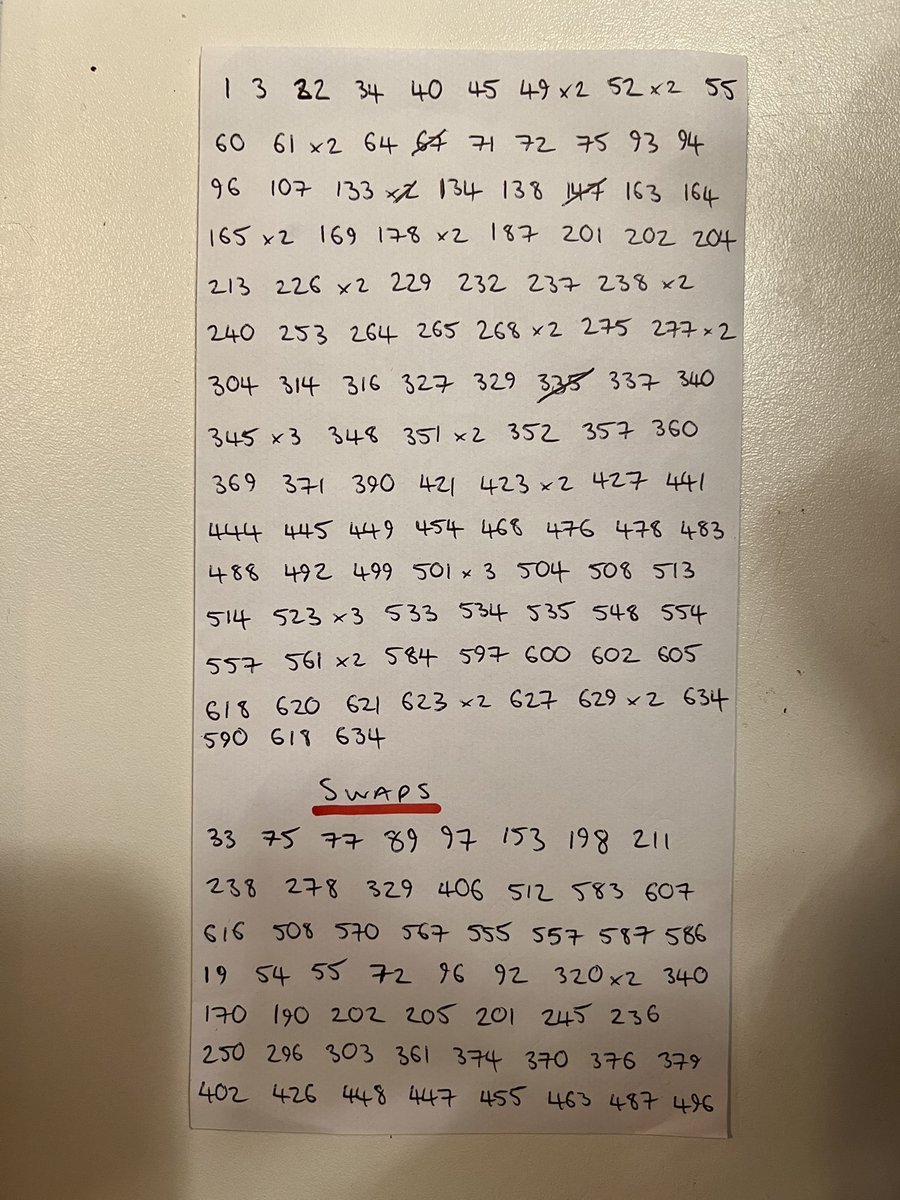 1 3 32 34 40 45 49 x2 52 x2 55
60 61 x2 64 67 71 72 75 93 94
96 107 133 x2 134 138 147 163 164
165 x2 169 178 x2 187 201 202 204
213 226 x2 229 232 237 238 x2
240 253 264 265 268 x2 275 277 x2
304 314 316 327 329 335 337 340
345 x3 348 351 x2 352 357 360
369 371 390 421 423 x2 427 441
444 445 449 454 468 476 478 483
488 492 499 501 x 3 504 508 513
514 523 x3 533 534 535 548 554
557 561 x2 584 597 600 602 605
618 620 621 623 x2 627 629 x2 634
590 618 634
SWAPS
33 75 77 89 97 153 198 211
238 278 329 406 512 583 607
616 508 570 567 555 557 587 586
19 54 55 72 96 92 320 x2 340
170 190 202 205 201 245 236
250 296 303 361 374 370 376 379
402 426 448 447 455 463 487 496